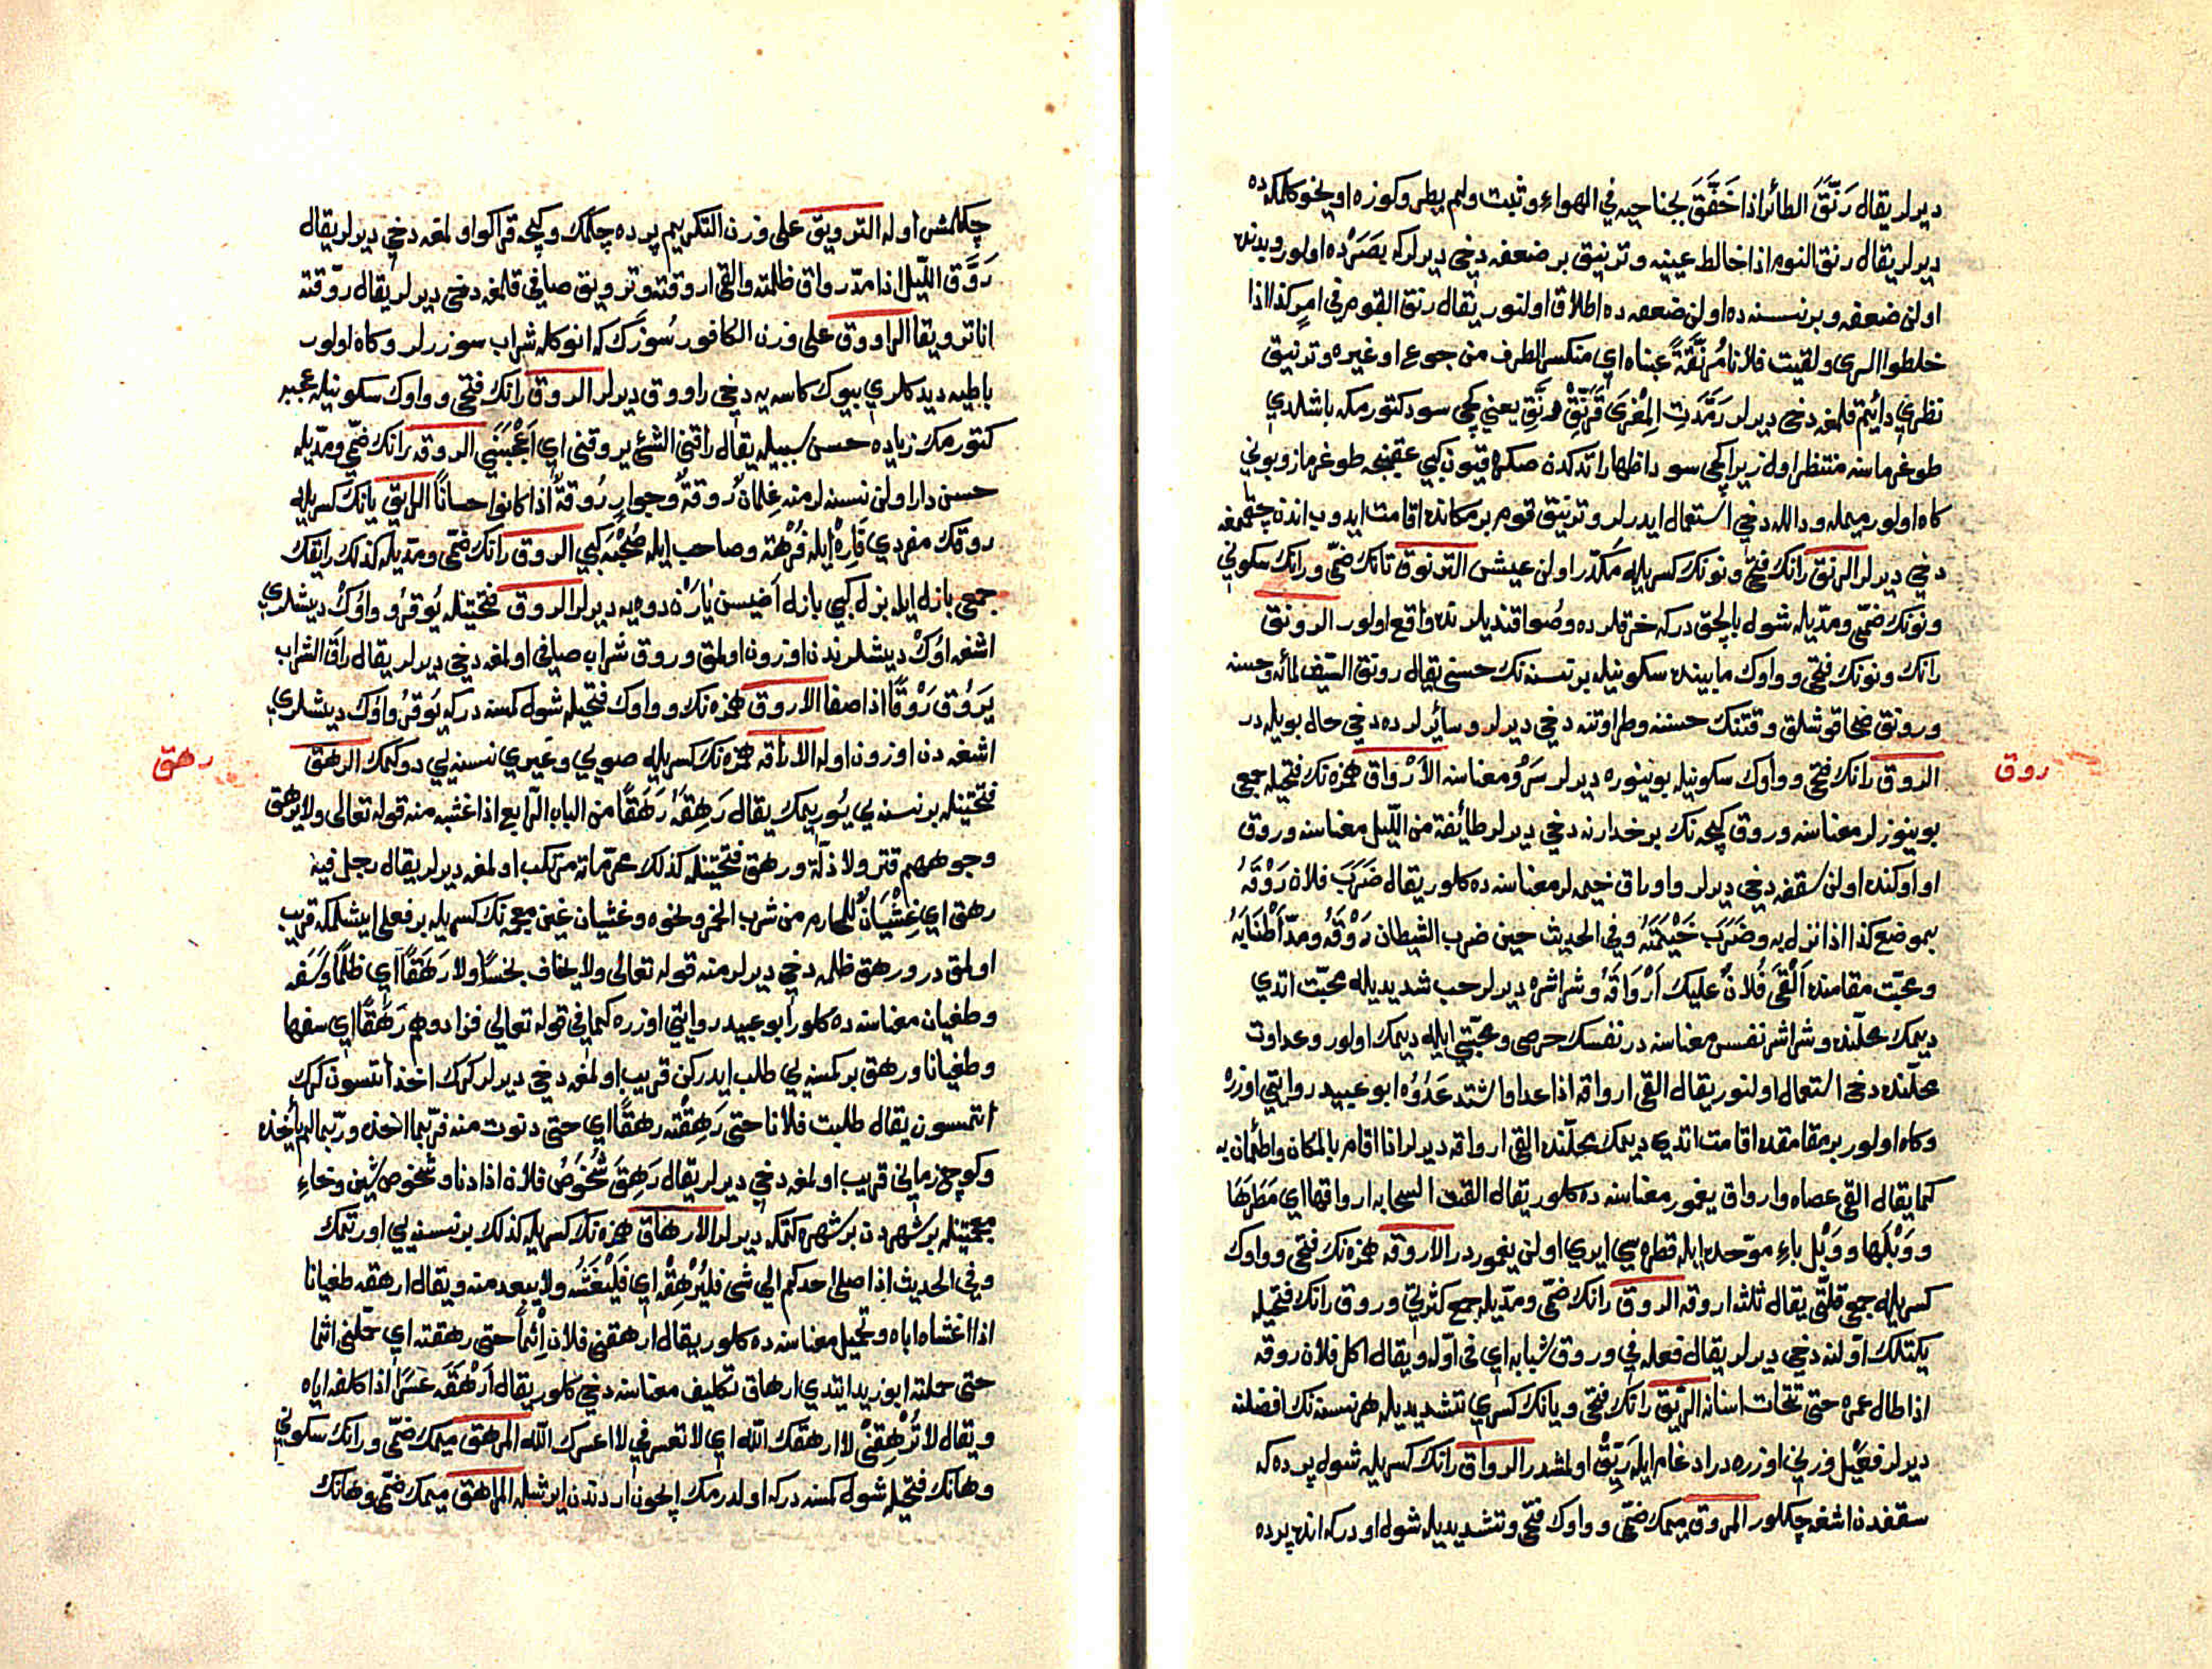 ديرلر يقال رَنَّقَ الطائر اذا خَفَّقَ بجناحيه في الهواء وثبت ولم يطر وكوزه اويخو كلمكده
ديرلر يقال رنق النوم اذا خالط عينيه وترنيق بر ضعفه دخي ديرلر كه بصرده اولور وبدنده
اولن ضعفه وبر نسنه ده اولن ضعفه ده اطلاق اولنور يقال رنق القوم في امر كذا اذا
خلطوا الرى ولقيت فلانا مُرَنَّقَةً عيناه اي منكسر الطرف من جوع او غيره وترنيق
نظري دائيم قلمغه دخي ديرلر رَمَّدَتِ المِعْزَى فَرَنِّقْ رَنِّقْ يعني كچى سود كتورمكه باشلدي
طوغرماسنه منتظر اول زيرا كچى سود اظهار اتدكدن صكره قيون كبي عقبنجه طوغرماز وبوني
كاه اولور ميمله ودالله دخي استعمال ايدرلر وترنيق قوم بر مكانده اقامت ايدوب اندن چقممغه
دخي ديرلر الرنق رانك فتحي ونونك كسريله مكدّر اولن عيش الترنوق تانك ضمّي ورانك سكوني
ونونك ضمّي ومدّيله شول بالچق دركه خرقلرده وصو اقنديلرنده واقع اولور الرونق
رانك ونونك فتحي وواوك مابينده سكونيله بر نسنه نك حسني يقال رونق السيف لمائه وحسنه
ورونق ضحا قوشلق وقتنك حسننه وطراوتنه دخي ديرلر وسائرلرده دخي حال بويله در
الروق رانك فتحي وواوك سكونيله بوينوزه ديرلر سَرْوُ معناسنه الأرْواق همزه نك فتحيله جمعي
بوينوزلر معناسنه وروق كيجه نك بر خدارنه دخي ديرلر طائفة من الليل معناسنه وروق
او اوكنده اولن سقفه دخي ديرلر واوراق خيمه لر معناسنه ده كلور يقال ضَرَبَ فلان رَوْقَهُ
بموضع كذا اذا نزل به وضَرَبَ خَيْمَتَهُ وفي الحديث حين ضرب الشيطان رَوْقَهُ ومدّ أَطْنَابَهُ
ومحبّت مقامنده اَلْقَى فُلَانٌ عليك اَرْوَاقَهُ وشراشره ديرلر حب شديديله محبّت اتدي
ديمك محلّنده وشراشر نفس معناسنه در نفسك حرصي ومحبّتي ايله ديمك اولور وعداوت
محلّنده دخي استعمال اولنور يقال القى ارواقه اذا عدا فاشتد عَدْوُه ابو عبيد روايتي اوزره
وكاه اولور بر مقامقده اقامت اتدي ديمك محلّنده القى ارواقه ديرلر اذا اقام بالمكان واطمأن به
كما يقال القى عصاه وارواق يغمور معناسنه ده كلور يقال القت السحابه ارواقها اي مَطَرَهَا
ووَبْلَهَا ووَبْل باء موحّده ايله قطره سي ايري اولن يغمور در الاروقه همزه نك فتحي وواوك
كسريله جمع قلّتي يقال ثلثة اروقه الروق رانك ضمّي ومدّيله جمع كثرتي وروق رانك فتحيله
يكتلك اوّلنه دخي ديرلر يقال فعله في وروق شبابه اي في اوّله ويقال اكل فلان روقه
اذا طال عمره حتى تحات اسنانه الريّق رانك فتحي ويانك كسري تشديديله هر نسنه نك افضلنه
ديرلر فَيْعِل وزني اوزره در ادغام ايله رَيِّقْ اولمشدر الرواق رانك كسريله شول پرده كه
سقفدن اشغه چكلور المروق ميمك ضمّي وواوك فتحي وتشديديله شول او دركه انده پرده
چكلمش اوله الترويق على وزن التكريم پرده چكمك وكيجه قراكو اولمغه دخي ديرلر يقال
رَوَّق اللّيل اذا مدّ رواق ظلمته والقى اروقته وترويق صافي قلمغه دخي ديرلر يقال روّقته
انا ترويقا الراووق على وزن الكافور سُوزَك كه انوكله شراب سوزرلر وكاه اولور
باطيه ديدكلري بيوك كاسه يه دخي راووق ديرلر الروق رانك فتحي وواوك سكونيله عجبر
كتورمك زياده حسن سببيله يقال راقني الشئ يروقني اي اَعْجَبَنِي الروقه رانك ضمّي ومدّيله
حسن دار اولن نسنه لر منه غِلمانٌ رُوقةٌ وجوارٍ رُوقةٌ اذا كانوا حسانًا الرايق يانك كسريله
روقك مفردي فَارِهْ ايله فُرْهَة وصاحب ايله صُحْبَه كبي الروق رانك ضمّي ومدّيله كذلك رايقك
جمعي بازل ايله بزل كبي بازل اَضيسن يارَن دوه يه ديرلر الروق فتحتيله يُوقَرُو واوُك ديشلري
اشغه اوُك ديشلرندن اوزون اولمق وروق شراب صافي اولمغه دخي ديرلر يقال راق الشراب
يَرُوق رَوْقًا اذا صفا الاروق همزه نك وواوك فتحيله شول كمسنه دركه يُوقَرُو اوُك ديشلري
اشغه دن اوزون اوله الاراقه همزه نك كسريله صويي وغيري نسنه يي دوكمك الرهق
فتحتيله بر نسنه يي بُوريمك يقال رَهِقَهُ رَهَقًا من الباب الرّابع اذا غشيه منه قوله تعالى ولا يرهق
وجوههم قتر ولا ذلّة ورهق فتحتيله كذلك محرّماته مرتكب اولمغه ديرلر يقال رجل فيه
رهق اي غِشْيَانٌ للمحارم من شرب الخمر ونحوه وغشيان غين معجمه نك كسريله بر فعلي ايشلمكه قريب
اولمق در ورهق ظلمه دخي ديرلر منه قوله تعالى ولا يخاف بخسًا ولا رَهَقًا اي ظلمًا وسَفه
وطغيان معناسنه ده كلور ابو عبيد روايتي اوزره كما في قوله تعالى فزادوهم رَهَقًا اي سفها
وطغيانا ورهق بر كمسنه يي طلب ايدركن قريب اولمغه دخي ديرلر كرك اخذ اتسون كرك
اتمسون يقال طلبت فلانا حتى رَهِقْتُه رهقًا اي حتى دنوت منه فربّما اخذه وربّما لم يأخذه
وكوچ زماني قريب اولمغه دخي ديرلر يقال رَهِقَ شُخُوصُ فلان اذا دنا وشخوص شين وخاء
معجمتيله بر شهردن بر شهره كتمكه ديرلر الارهاق همزه نك كسريله كذلك بر نسنه يي اورتمك
وفي الحديث اذا صلى احدكم الى شى فَلْيُرْهِقْهُ اي فَلْيَغْشَهُ ولا يبعد منه ويقال ارهقه طغيانا
اذا اغشاه اياه وتحميل معناسنه ده كلور يقال ارهقني فلان اِثْماً حتى رهقته اي حمّلني اثما
حتى حملته ابو زيد ايتدي ارهاق تكليف معناسنه دخي كلور يقال اَرْهَقَه عسرًا اذا كلفه اياه
ويقال لا تُرْهِقْنِي لا ارهقك الله اي لا تعسرني لا اعسرك الله المرهق ميمك ضمّي ورانك سكوني
وهانك فتحيله شول كمسنه دركه اولدرمك ايچون اردندن ايرشله المراهق ميمك ضمّي وهانك
روق
رهق